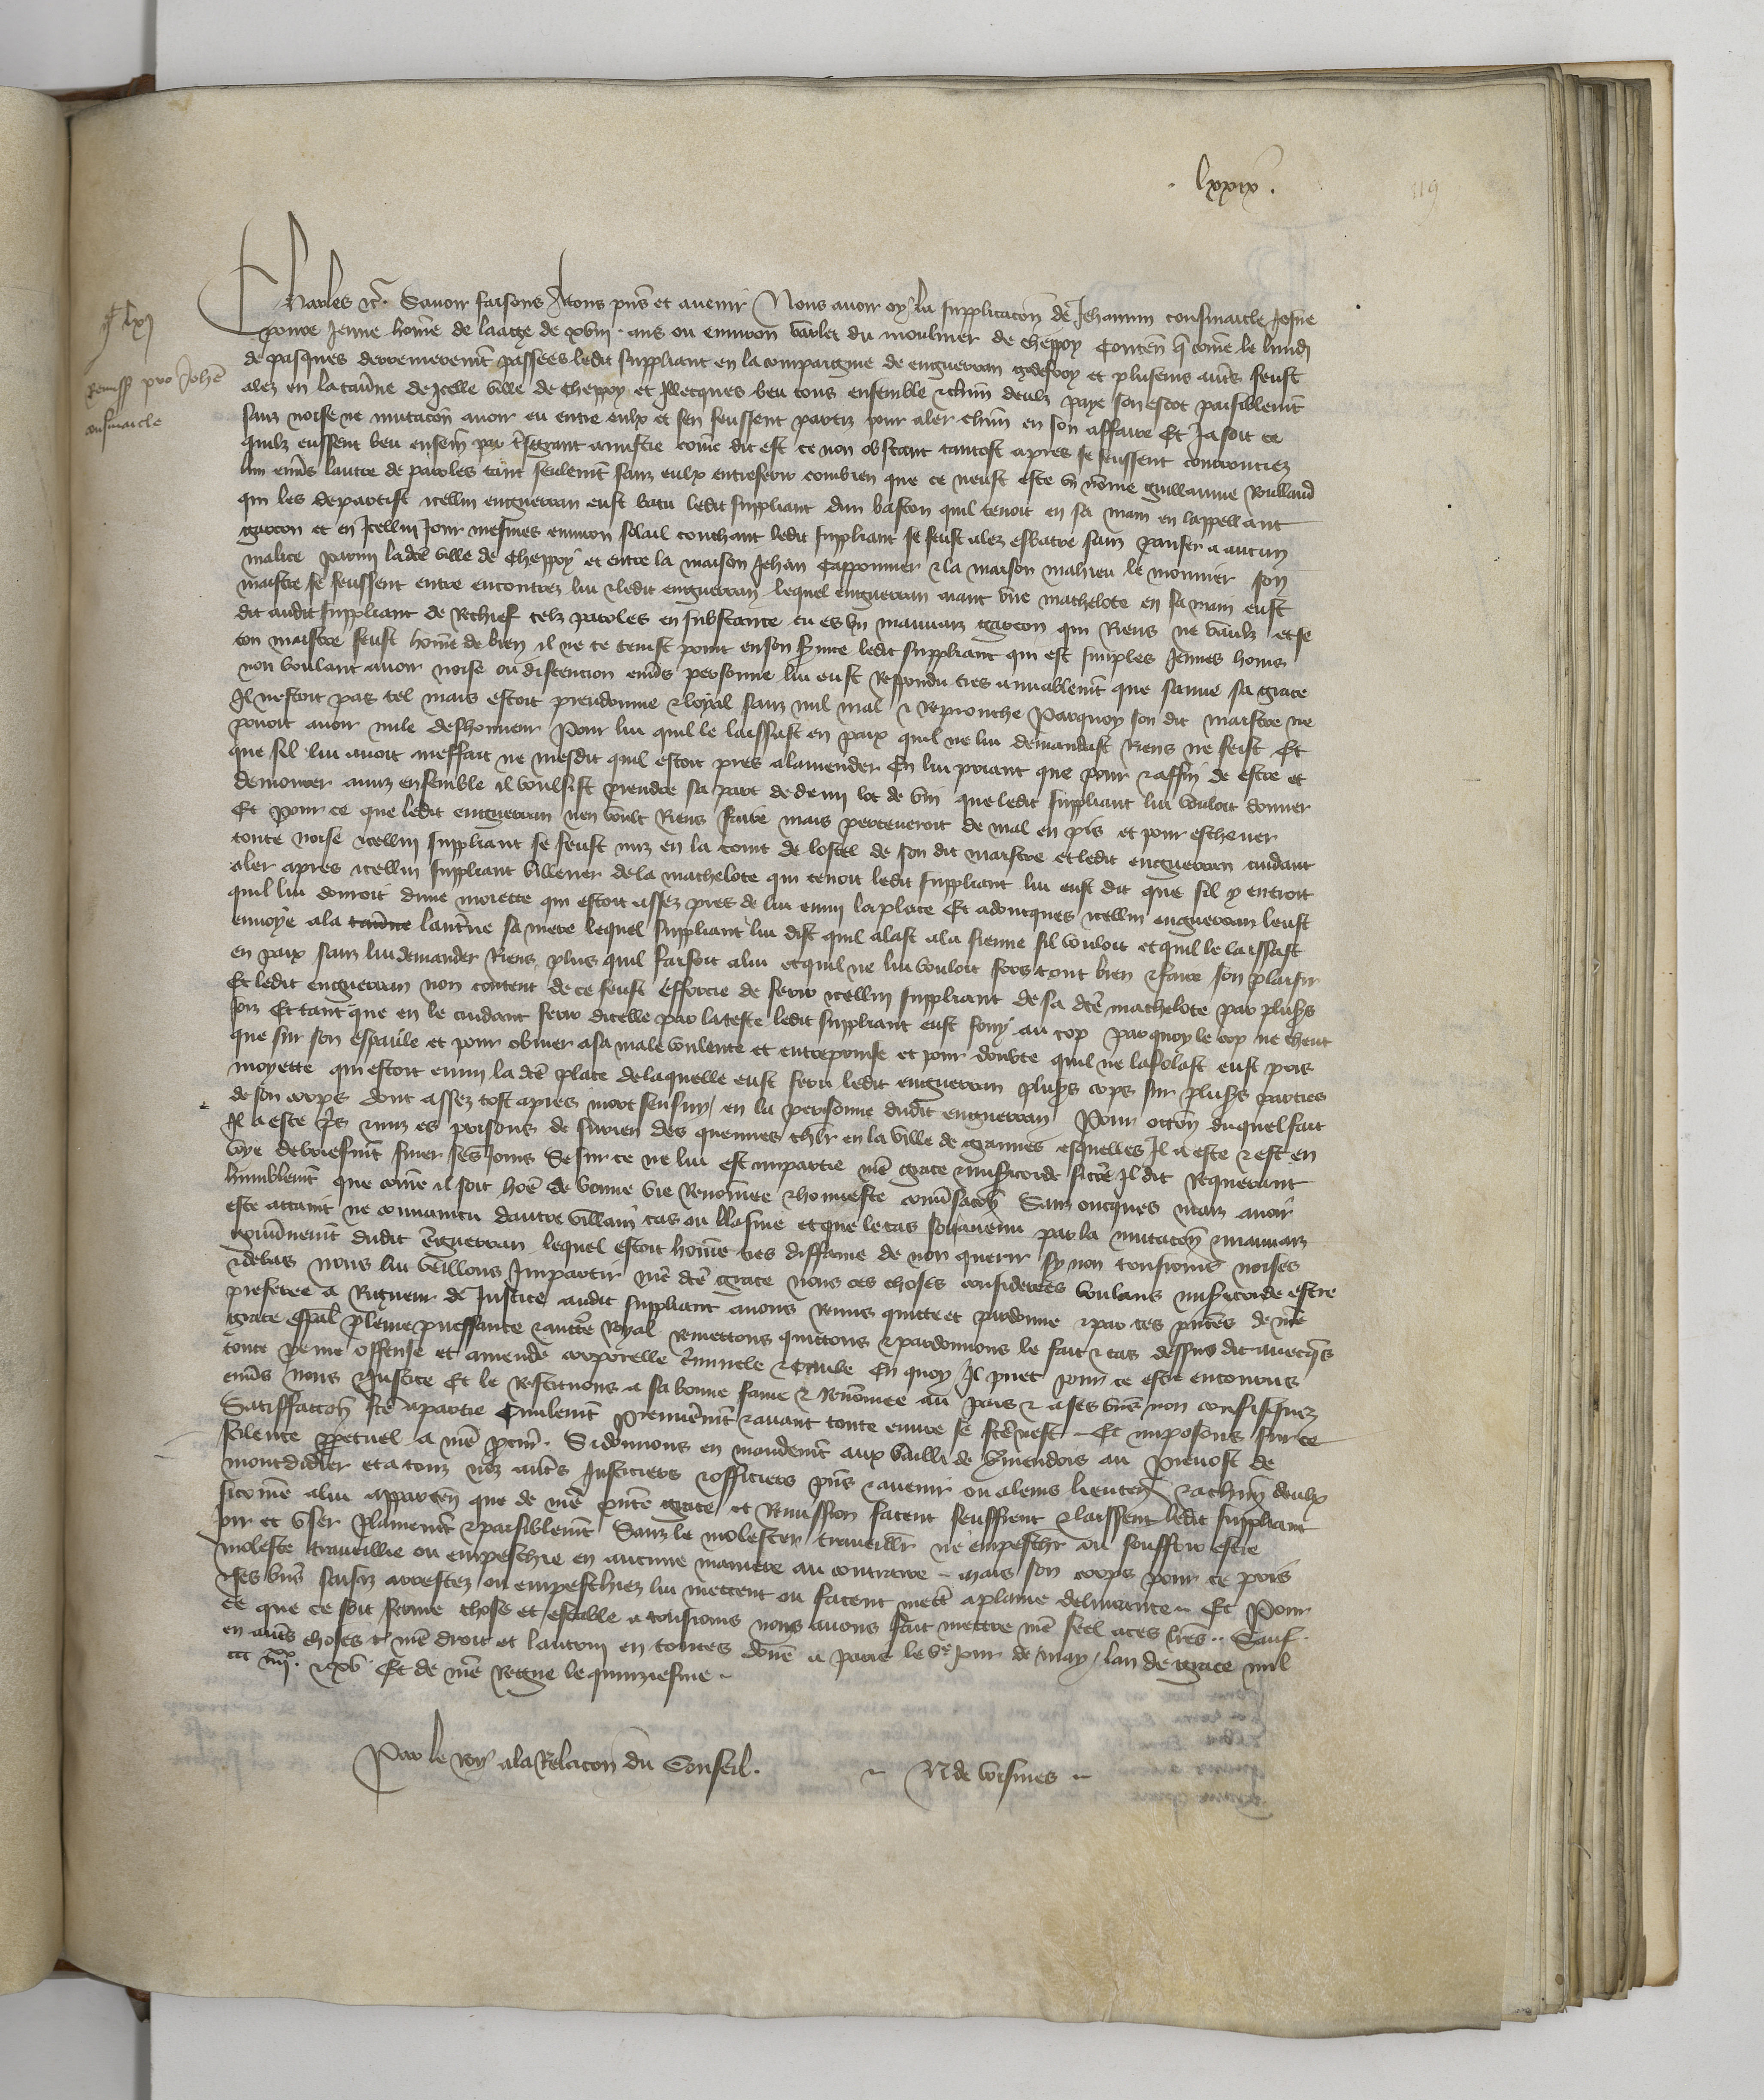 . lxxix.
119
Charles etc. Savoir faisons Atous pns et avenir Nous avoir oy la supplicacon de Jehannin cousinaicle Josne
povre Jenne home de laage de xviii. ans ou environ varlet du moulnier de cheppoy Conten q come le lundi
de pasques derremerement passees ledit suppliant en la compaignie de enguerran godefroy et pluseurs autrs feust
alez en la taverne de Icelle ville de Cheppoy et Illecques beu tous ensemble et chun deulz paye son escot paisiblemt
sanz noise ne mutacon avoir eu entre eulx et sen feussent partiz pour aler chun en son affaire Et Ja soit ce
quilz eussent beu ensem par t grant amistie come dit est ce non obstant tantost apres se feussent courouciez
lun envs lautre de paroles tant seulemt sanz eulx entreferir combien que ce neust este un nome guillaume Roulland
qui les departist icellui enguerran eust batu ledit suppliant dun baston quil tenoit en sa main en lappellant
garcon et en Icellui Jour mesmes environ solail couchant ledit suppliant se feust alez esbatre sanz penser a aucun
malice parmi ladte ville de Cheppoy et entre la maison Jehan Capponnier et la maison mahieu le monnier son
maistre se feussent entre encontrez lui et ledit enguerran lequel enguerran aiant une machelote en sa main eust
dit audit suppliant de Rechief telz paroles en substance tu es un mauvaiz garcon qui Riens ne vaulz et se
ton maistre feust home de bien il ne te tenist point en son svice ledit suppliant qui est simples Jennes homs
non voulant avoir noise ou discencion envs personne lui eust Respondu tres amiablemt que sauve sa grace
Il nestoit pas tel mais estoit preudomme et loyal sanz nul mal et reprouche Parquoy son dit maistre ne
povoit avoir nule deshonneur Pour lui quil le laissast en paix quil ne lui demandast Riens ne feist Et
que sil lui avoit meffait ne mesdit quil estoit pres alamender En lui priant que pour et affin de estre et
demourer amiz ensemble il voulsist prendre sa part de demi lot de vin que ledit suppliant lui vouloit donner
Et pour ce que ledit enguerran nen voult Riens faire mais perseveroit de mal en pis et pour eschever
toute noise icellui suppliant se feust miz en la court de lostel de son dit maistre et ledit enguerran cuidant
aler apres icellui suppliant villener de la machelote qui tenoit ledit suppliant lui eust dit que sil y entroit
quil lui donroit dune moiette qui estoit assez pres de lui enmi la place Et adoncques icellui enguerran leust
envoye ala taverne lanterne sa mere lequel suppliant lui dist quil alast ala sienne sil vouloit et quil le laissast
en paix sanz lui demander Riens plus quil faisoit alui et quil ne lui vouloit fors tout bien et faire son plaisir
Et ledit enguerran non content de ce feust efforcie de ferir icellui suppliant de sa dte machelote par plusrs
foiz Et tant que en le cuidant ferir dicelle par la teste ledit suppliant eust fouy au cop parquoy le cop ne cheut
que sur son espaule et pour obvier a sa male voulente et entreprinse et pour doubte quil ne lafolast eust pris
moyette qui estoit enmi la dte place de laquelle eust feru ledit enguerran plusrs cops sur plusrs parties
de son corps dont assez tost apres mort sensuy en la personne dudit enguerran Pour occon duquel fait
Il a este ps et miz es prisons de sirien des quennes chlr en la ville de gannes esquelles Il a este et est en
voye de briefmt finer ses Jours Se sur ce ne lui est impartie nre grace et misicorde sicoe Il dit Requerant
humblemt que come il soit hoe de bonne vie Renomee et honneste convsacon Sanz oncques maiz avoir
este attaint ne convaincu dautre villain cas ou blasme et que le cas soit avenu par la mutacon et mauvaiz
gouvnemt dudit enguerran lequel estoit home tres diffame de non querir sy non tousiours noises
et debas nous lui veillons Impartir nre dte grace nous ces choses considerees voulans misicorde estre
preferee a Rigueur de Justice audit suppliant avons Remis quitte et pardonne et par ces pntes de nre
grace espal plaine puissance et auctte Royal remettons quittons et pardonnons le fait et cas dessus dit avecqs
toute peine offense et amende corporelle criminele et Civile En quoy Il puet pour ce estre encourus
envs nous et Justice Et le Restituons a sa bonne fame et Renomee au pais et a ses bns non confisquez
Satisffaccon fte a partie Civilemt Premiermt et avant toute euvre se fte nest Et imposons sur ce
silence ppetuel a nre pcur. Si donnons en mandemt aux bailli de Vmendois au Prevost de
montdidier et a touz noz autrs Justiciers et officiers pns et avenir ou a leurs lieuten et a chun deulx
sicome a lui apparten que de nre pnte grace et Remission facent seuffrent et laissent ledit suppliant
joir et user plainemt et paisiblemt Sanz le molester traveillr ne empeschr ou souffrir estre
moleste travaillie ou empeschie en aucune maniere au contraire mais son corps pour ce pris
et ses bns saisiz arrestez ou empeschiez lui mettent ou facent mett a plaine delivrance Et Pour
ce que ce soit ferme chose et estable a tousiours nous avons fait mettre nre seel a ces lres. Sauf
en autrs choses nre droit et lautrui en toutes done a paris le ve jour de may lan de grace mil
ccc iiiixx. et xv Et de nre Regne le quinziesme
Par le roy ala Relacon du Conseil. N de voisines
lxi
Remiss pro Johe
cousinaicle